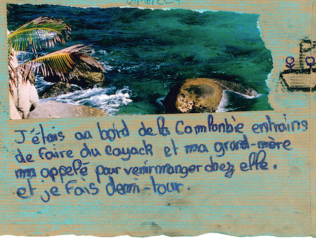 J'étais au bord de la Comfonbie entrains
de faire du cayack et ma grand-mère
m'a appelé pour venir manger chez elle.
et je fais demi-tour.